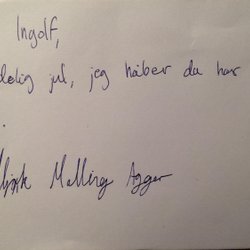 Ingolf,
delig jul, jeg håber du har
Malling Agger